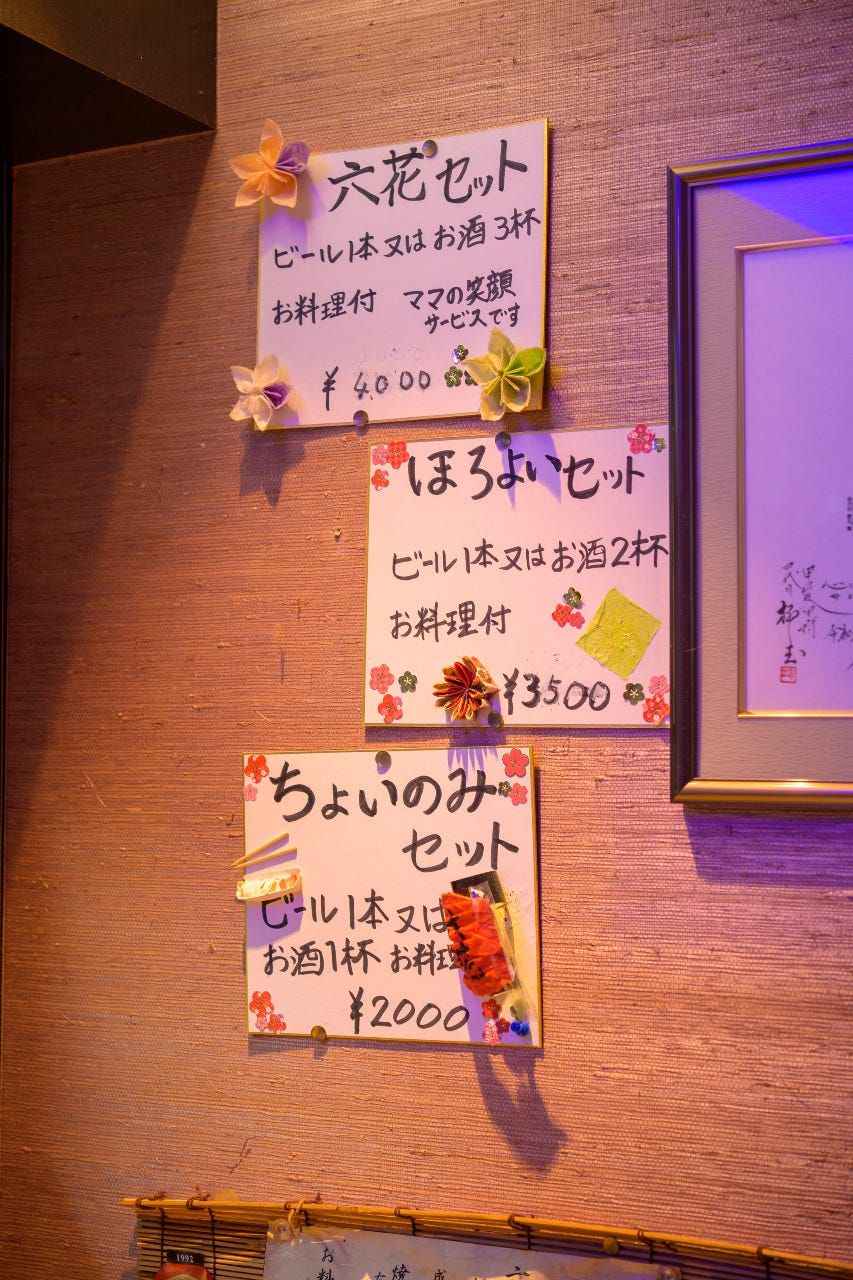 六花セット
ビール1本又はお酒3杯
お料理付 ママの笑顔
サービスです
¥4000
ほろよいセット
ビール1本又はお酒2杯
お料理付
¥3500
ちょいのみ
セット
ビール1本又は
お酒1杯 お料理
¥2000
1992